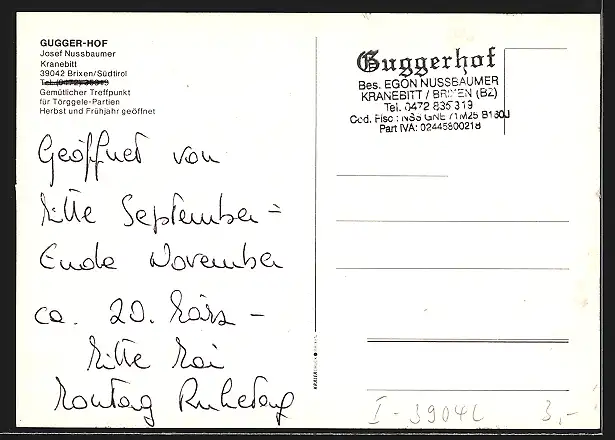 GUGGER-HOF
Josef Nussbaumer
Kranebitt
39042 Brixen/Südtirol
Tel. (0472) 35319
Gemütlicher Treffpunkt
für Törggele-Partien
Herbst und Frühjahr geöffnet
Guggerhof
Bes. EGON NUSSBAUMER
KRANEBITT / BRIXEN (BZ)
Tel. 0472 835319
Cod. Fisc.: NSS GNE 71M25 B160J
Part IVA: 02445800218
Geöffnet von
Mitte September -
Ende November
ca. 20. März -
Mitte Mai
Montag Ruhetag
I - 39042 3,-